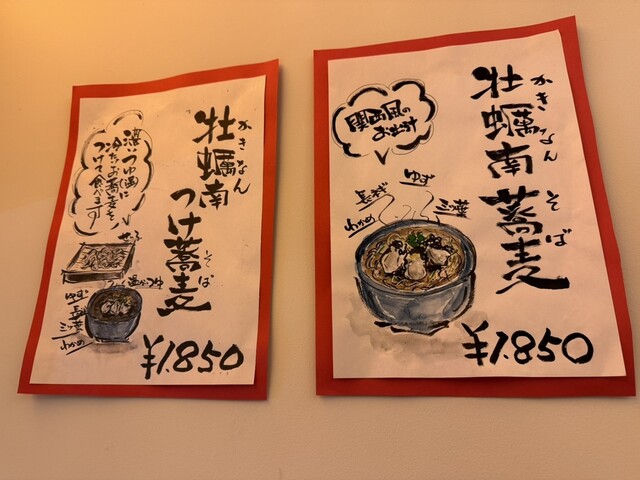 牡蠣南蛮つけ蕎麦
かきなん
そば
冷たいお蕎麦を
つけて食べます
せいろ
温かいつゆ
ゆず
長ネギ
三ツ葉
わかめ
¥1.850
牡蠣南蕎麦
かきなん
そば
関西風の
おだし
ゆず
長ネギ
三ツ葉
わかめ
¥1.850